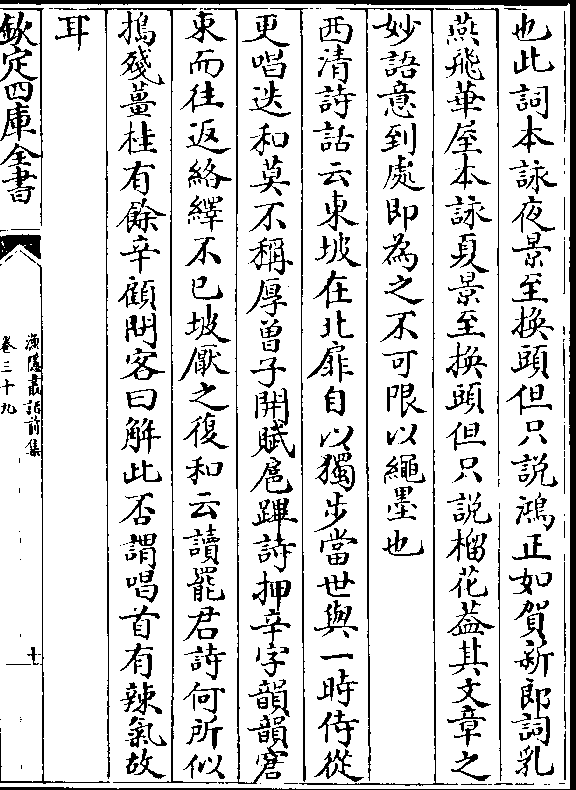 也此詞本詠夜景至換頭但只說鴻正如賀新郎詞乳
燕飛華屋本詠夏景至換頭但只說榴花葢其文章之
妙語意到處即為之不可限以繩墨也
西清詩話云東坡在北扉自以獨步當世與一時侍從
更唱迭和莫不稱厚曽子開賦扈蹕詩押辛字韻韻窘
束而往返絡繹不已坡厭之復和云讀罷君詩何所似
搗殘薑桂有餘辛顧問客曰解此否謂唱首有辣氣故
耳
欽定四庫全書
漁隱叢話前集
卷三十九
十